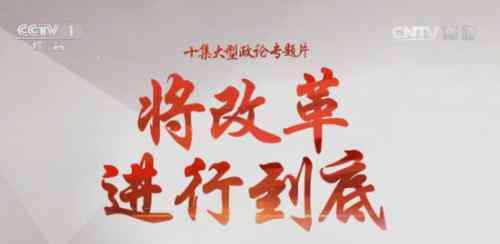 CCTV 1
CNTV
十集大型政论专题片
将改革
进行到底